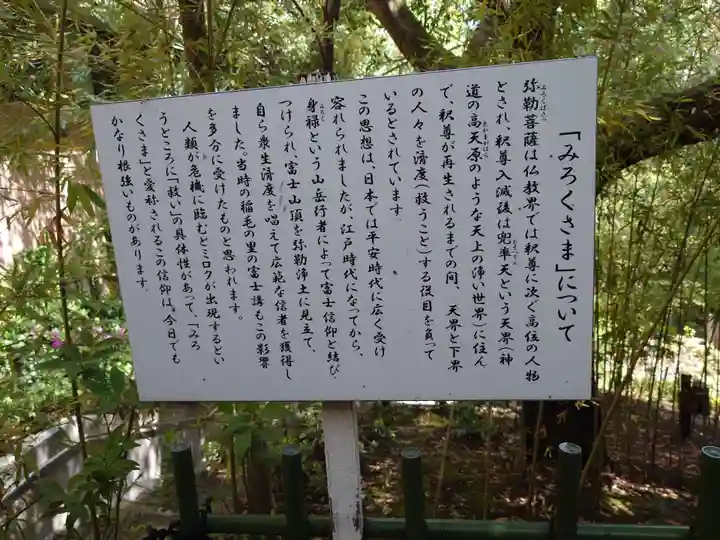 「みろくさま」について
弥勒菩薩は仏教界では釈尊に次ぐ高位の人物
とされ、釈尊入滅後は兜率天という天界(神
道の高天原のような天上の浄い世界)に住ん
で、釈尊が再生されるまでの間、天界と下界
の人々を済度(救うこと)する役目を負って
いるとされています。
この思想は、日本では平安時代に広く受け
容れられましたが、江戸時代になってから、
身禄という山岳行者によって富士信仰と結び
つけられ、富士山頂を弥勒浄土に見立て、
自ら衆生済度を唱えて広範な信者を獲得し
ました。当時の稲毛の里の富士講もこの影響
を多分に受けたものと思われます。
人類が危機に臨むとミロクが出現するとい
うところに「救い」の具体性があって、「みろ
くさま」と愛称されるこの信仰は、今日でも
かなり根強いものがあります。